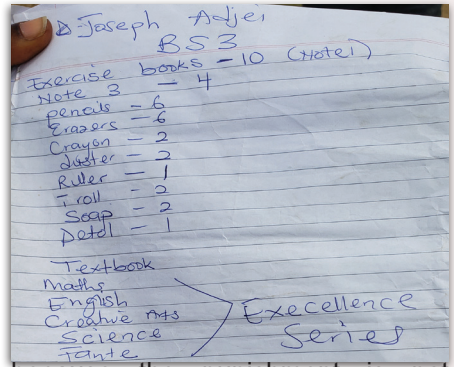 D. Joseph Adjei
BS3
Exercise books - 10 (Note 1)
Note 3 - 4
pencils - 6
Erazers - 6
Crayon - 2
duster - 2
Ruler - 1
Troll - 2
Soap - 2
Detol - 1
Textbook
Maths
English
Creative Arts
Science
Fante
Execellence
Series